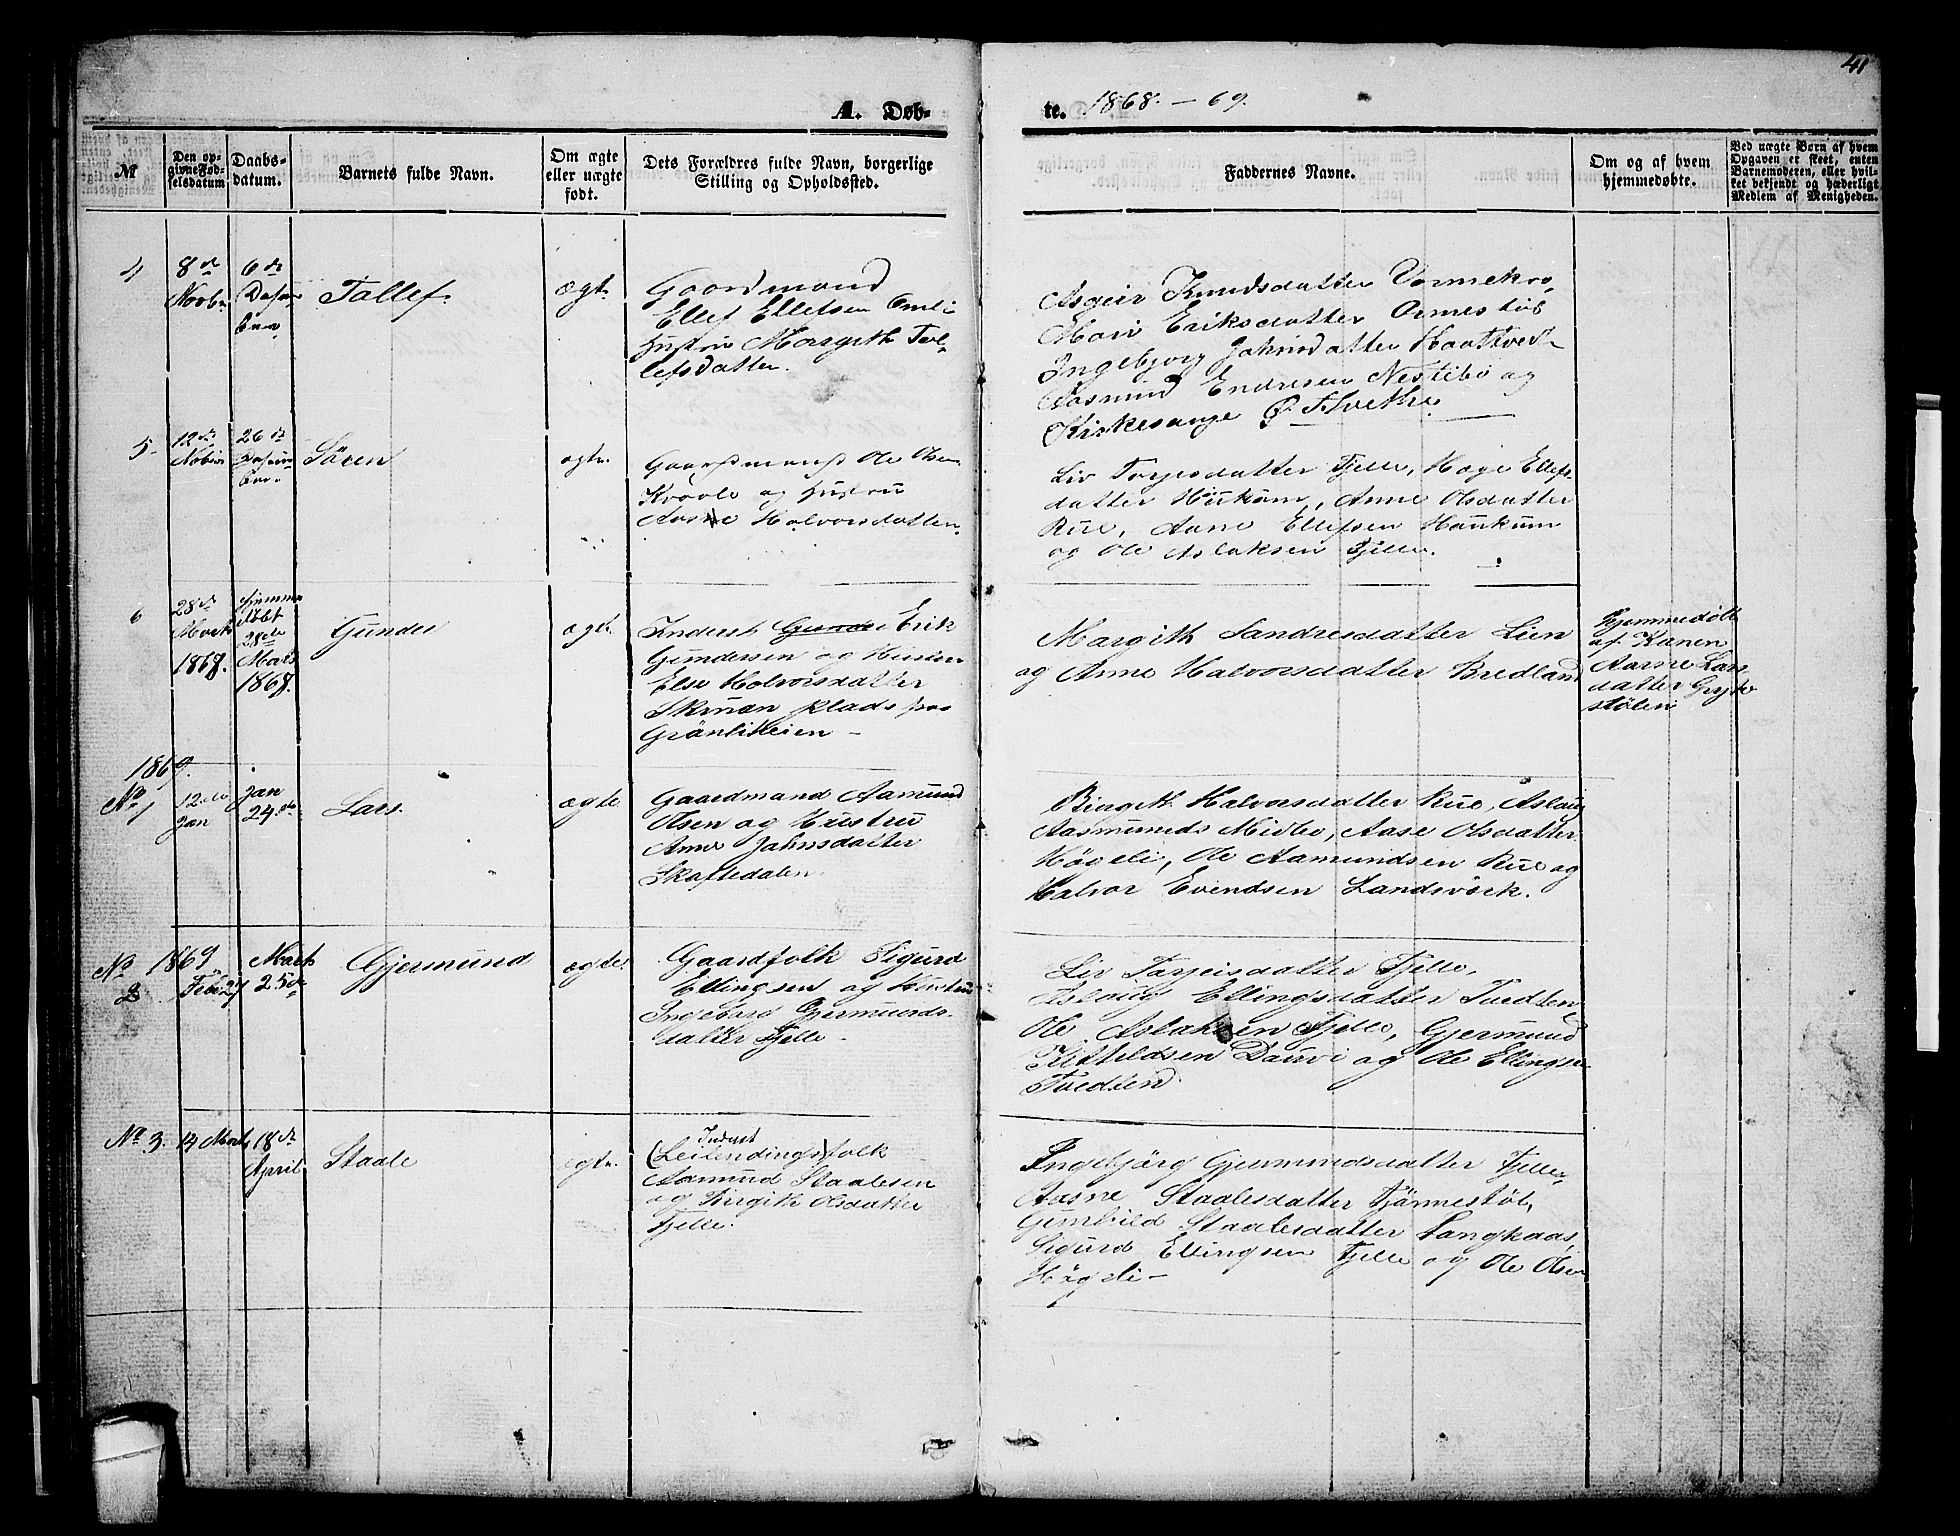 41
A. Døb-
te. 1868. – 69.
№
Den op-
givne Fød-
selsdatum
Daabs-
datum.
Barnets fulde Navn.
Om ægte
eller uægte
født.
Dets Forældres fulde Navn, borgerlige
Stilling og Opholdssted.
Faddernes Navne.
Om og af hvem
hjemmedøbte.
Ved uægte Børn af hvem
Opgaven er skeet, enten
Barnemoderen, eller hvil-
ket bekjendt og hæderligt
Medlem af Menigheden.
4
8de
Novbr.
6de
Tallef.
ægt.
Gaardmand
Ellef Ellefsen
Hustru Margith Tal-
lefsdatter.
Asgjer Knudsdatter
Mari Eriksdatter Ormestøl
Ingebjorg Jahnsdatter Haatvedt
Aasmund Endresen Nestebø og
Kirkesanger
5
12de
26de
Sören
ægte.
Gaardmand Ole Olsen
og Hustru
Aasne Halvorsdatter.
Liv Torjesdatter Fjelle, Hæge Ellefs-
datter Haukum, Anne Olsdatter
Rue, Aane Ellefsen Haukum
og Ole Aslaksen Fjelle.
6
28de
Marts
1868.
Hjemme
døbt
28de
Mars
1868.
Gunder
ægt.
Inderst Gunder Erik
Gundersen og Hustru
Else Halvorsdatter
plads paa
Grönliheien –
Margith Sandresdatter Lien
og Anne Halvorsdatter Bredland
Hjemmedöbt
af Konen
Aasne Lars
datter Gryte
stölen
1869.
No 1
12de
Jan
Jan
24de
Lars.
ægte
Gaardmand Aamund
Olsen og Hustru
Anne Jahnsdatter
Skaftedalen.
Birgith Halvorsdatter Rue, Aslaug
Aasmunds Midbo, Aase Olsdatter
Högeli, Ole Aamundsen Rue og
Halvor Evendsen Landsvörk.
No 2
1869
Feb 27
Marts
25de
Gjermund
ægte.
Gaardfolk Sigurd
Ellingsen og Hustru
Ingeborg Gjermunds-
datter Fjelle.
Liv Torjeisdatter Fjelle,
Aslaug Ellingsdatter Tvedten,
Ole Aslaksen Fjelle, Gjermund
Kittildsen Dauvi og Ole Ellingsen
Tvedten.
No 3.
14 Marts
18de
April
Staale
ægte.
Inderst
(Leilendings)folk
Aamund Staalesen
og Birgith Olsdatter
Fjelle.
Ingebjörg Gjermundsdatter Fjelle
Aasne Staalesdatter Tjönnestöl,
Gunhild Staalesdatter Langkaas,
Sigurd Ellingsen Fjelle og Ole Olsen
Högeli –